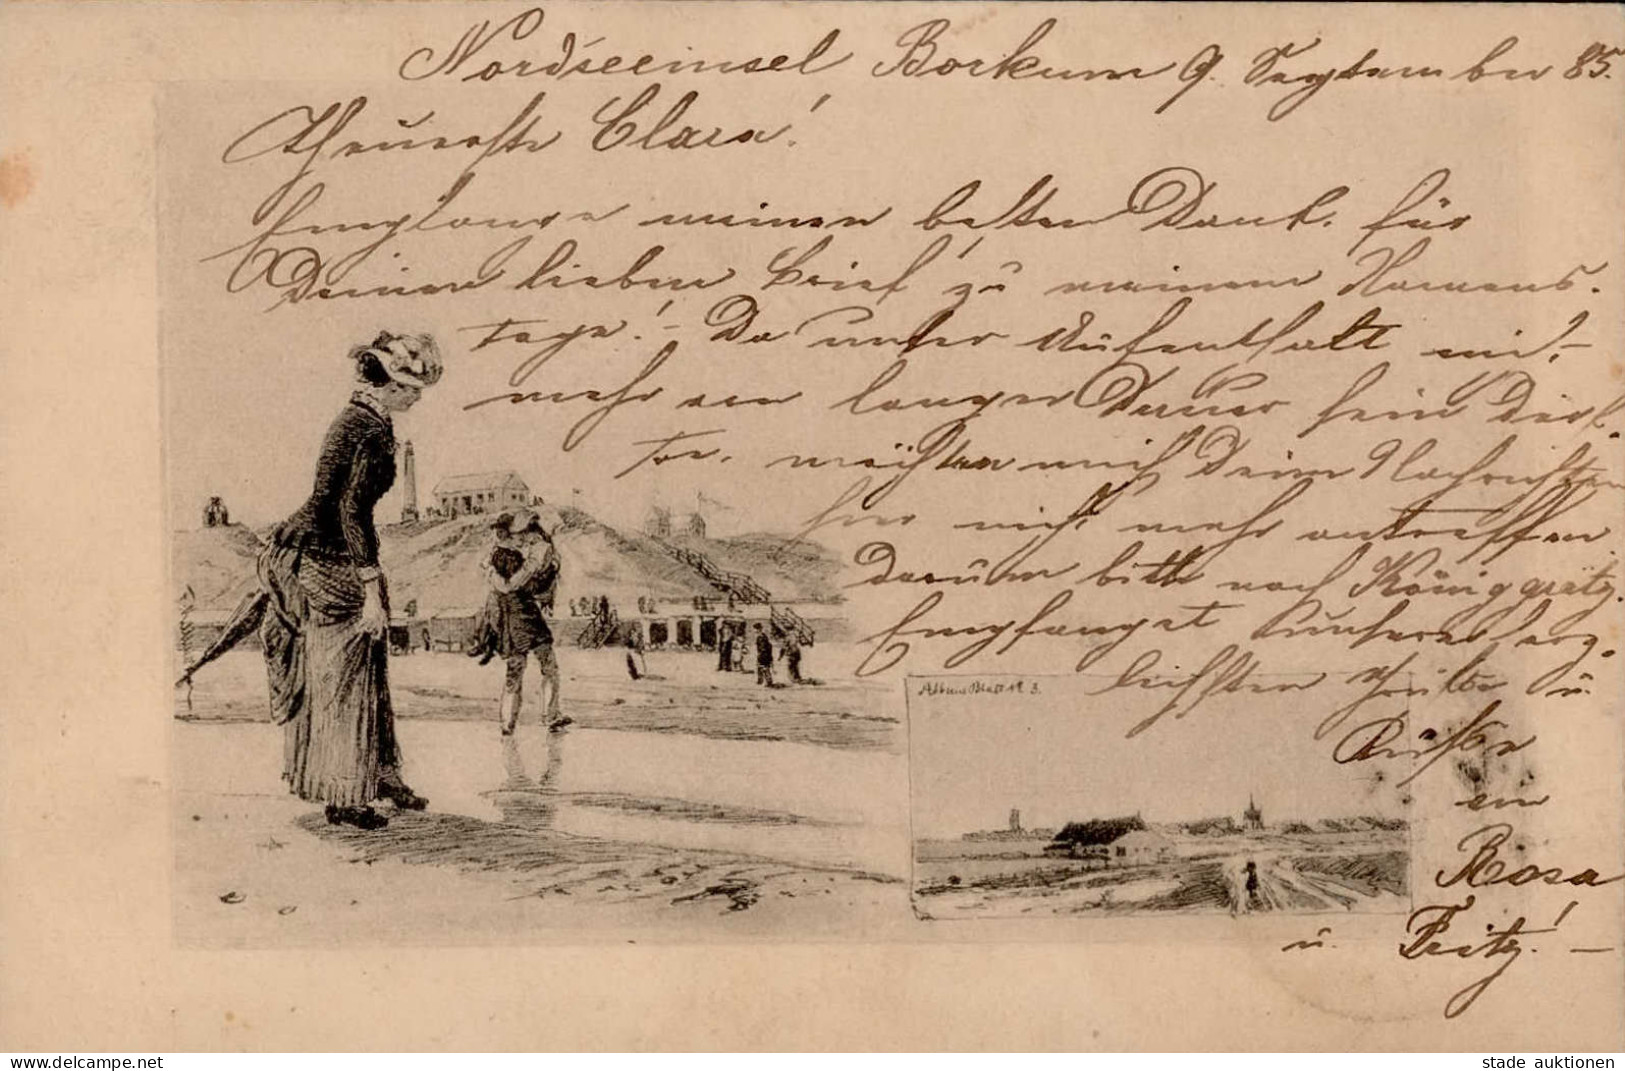 Nordseeinsel Borkum 9. September 85.
Theuerste Clara!
Empfange meinen besten Dank. für
Deinen lieben Brief zu meinem Namens-
tage! - Da unser Aufenthalt nim-
mehr von langer Dauer sein dürf-
te, möchten mich Deine Nachrichten
hier nicht mehr antreffen
Darum bitte nach Königgrätz.
Empfanget unsere herz-
lichsten Grüße u.
Küsse
Rosa
u. Fritz! -
Album Blatt № 3.
stade auktionen
www.delcampe.net